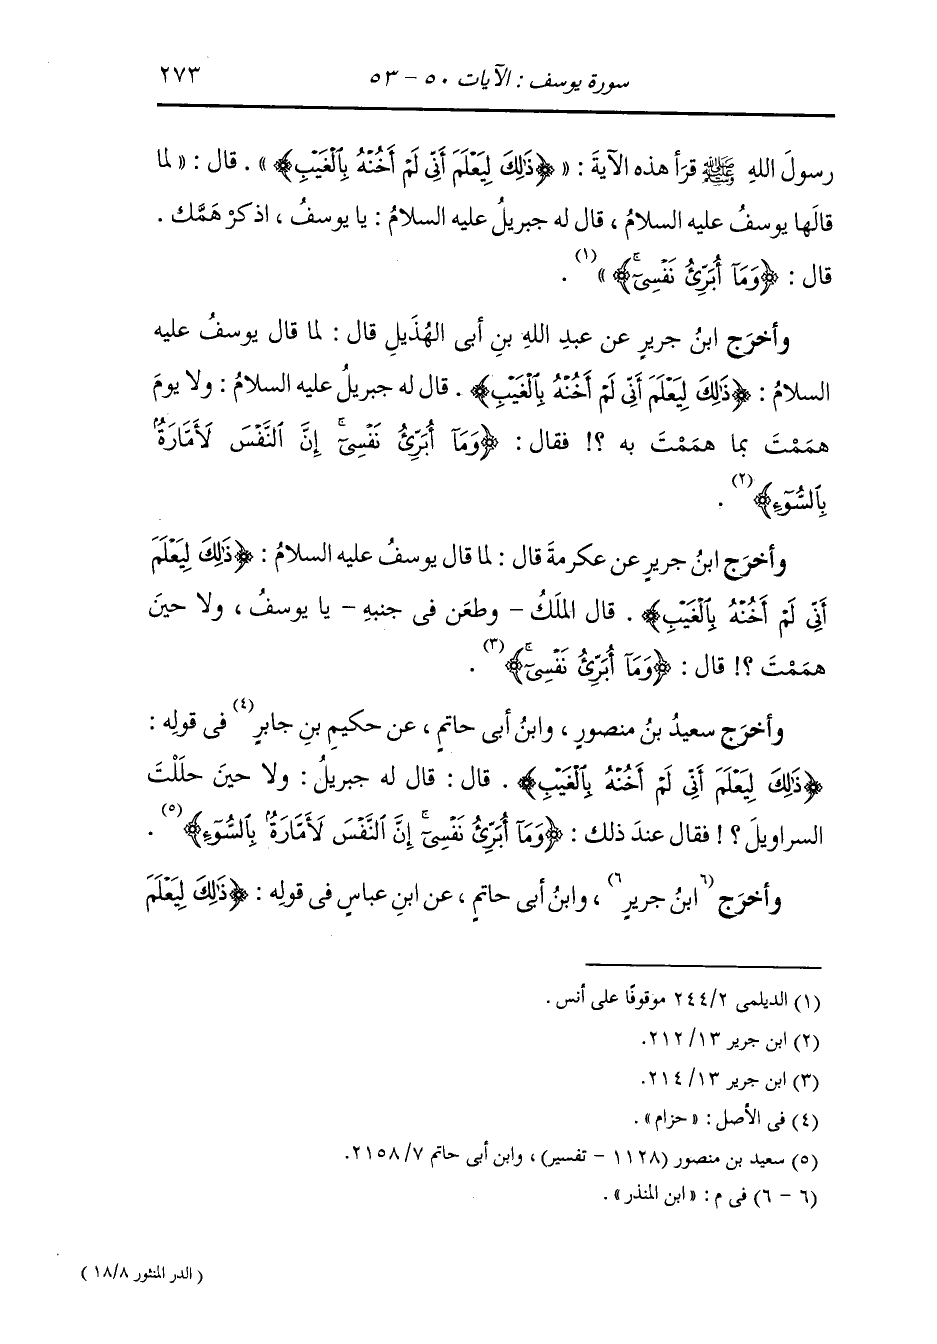 سورة يوسف : الآيات ٥٠ - ٥٣ ٢٧٣
رسولَ اللهِ ﷺ قرَأ هذه الآيةَ : « ﴿ذَٰلِكَ لِيَعْلَمَ أَنِّي لَمْ أَخُنْهُ بِٱلْغَيْبِ﴾ » . قال : « لما
قالَها يوسفُ عليه السلامُ ، قال له جبريلُ عليه السلامُ : يا يوسفُ ، اذكرْ هَمَّك .
قال : ﴿وَمَآ أُبَرِّئُ نَفْسِيٓ ۚ﴾ »(١) .
وأخرَج ابنُ جريرٍ عن عبدِ اللهِ بنِ أبى الهُذَيلِ قال : لما قال يوسفُ عليه
السلامُ : ﴿ذَٰلِكَ لِيَعْلَمَ أَنِّي لَمْ أَخُنْهُ بِٱلْغَيْبِ﴾ . قال له جبريلُ عليه السلامُ : ولا يومَ
همَمْتَ بما همَمْتَ به ؟! فقال : ﴿وَمَآ أُبَرِّئُ نَفْسِيٓ ۚ إِنَّ ٱلنَّفْسَ لَأَمَّارَةٌۢ
بِٱلسُّوٓءِ﴾(٢) .
وأخرَج ابنُ جريرٍ عن عكرمةَ قال : لما قال يوسفُ عليه السلامُ : ﴿ذَٰلِكَ لِيَعْلَمَ
أَنِّي لَمْ أَخُنْهُ بِٱلْغَيْبِ﴾ . قال الملَكُ - وطعَن فى جنبِهِ - يا يوسفُ ، ولا حينَ
همَمْتَ ؟! قال : ﴿وَمَآ أُبَرِّئُ نَفْسِيٓ ۚ﴾(٣) .
وأخرَج سعيدُ بنُ منصورٍ ، وابنُ أبى حاتمٍ ، عن حكيمِ بنِ جابرٍ(٤) فى قولِه :
﴿ذَٰلِكَ لِيَعْلَمَ أَنِّي لَمْ أَخُنْهُ بِٱلْغَيْبِ﴾ . قال : قال له جبريلُ : ولا حينَ حلَلْتَ
السراويلَ ؟! فقال عندَ ذلك : ﴿وَمَآ أُبَرِّئُ نَفْسِيٓ ۚ إِنَّ ٱلنَّفْسَ لَأَمَّارَةٌۢ بِٱلسُّوٓءِ﴾(٥) .
وأخرَج (٦ابنُ جريرٍ٦) ، وابنُ أبى حاتمٍ ، عن ابنِ عباسٍ فى قولِه : ﴿ذَٰلِكَ لِيَعْلَمَ
(١) الديلمى ٢٤٤/٢ موقوفًا على أنس .
(٢) ابن جرير ٢١٢/١٣.
(٣) ابن جرير ٢١٤/١٣.
(٤) فى الأصل : « حزام » .
(٥) سعيد بن منصور (١١٢٨ - تفسير) ، وابن أبى حاتم ٢١٥٨/٧.
(٦ - ٦) فى م : « ابن المنذر » .
( الدر المنثور ١٨/٨ )